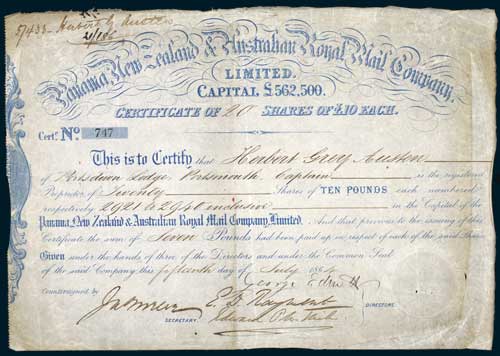 Panama New Zealand & Australian Royal Mail Company,
LIMITED.
CAPITAL £562,500.
CERTIFICATE OF 20 SHARES OF £10 EACH.
Cert. No 747
This is to Certify that Herbert Grey Austen
of Portsdown Lodge, Portsmouth, Captain is the registered
Proprietor of Twenty Shares of TEN POUNDS each numbered
respectively 2921 to 2940 inclusive in the Capital of the
Panama, New Zealand & Australian Royal Mail Company, Limited. And that previous to the issuing of this
Certificate the sum of Seven Pounds had been paid up in respect of each of the said Shares
Given under the hands of three of the Directors and under the Common Seal
of the said Company this fifteenth day of July 1864
George
Countersigned by
E.
DIRECTORS.
SECRETARY. Edward